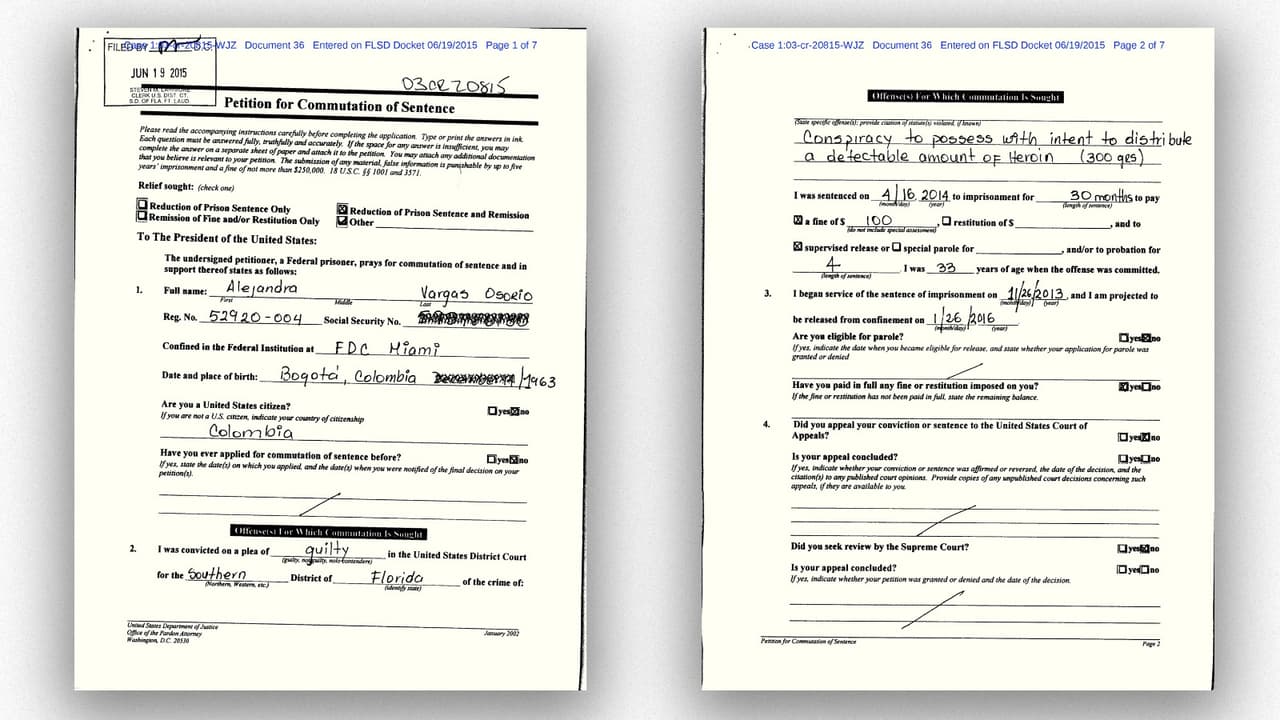 Case 1:03-cr-20815-WJZ Document 36 Entered on FLSD Docket 06/19/2015 Page 1 of 7
FILED BY D.C.
JUN 19 2015
CLERK U.S. DIST. CT.
S.D. OF FLA. FT. LAUD.
03CR20815
Petition for Commutation of Sentence
Please read the accompanying instructions carefully before completing the application. Type or print the answers in ink.
Each question must be answered fully, truthfully and accurately. If the space for any answer is insufficient, you may
complete the answer on a separate sheet of paper and attach it to the petition. You may attach any additional documentation
that you believe is relevant to your petition. The submission of any material, false information is punishable by up to five
years' imprisonment and a fine of not more than $250,000. 18 U.S.C. §§ 1001 and 3571.
Relief sought: (check one)
Reduction of Prison Sentence Only
Reduction of Prison Sentence and Remission
Remission of Fine and/or Restitution Only
Other
To The President of the United States:
The undersigned petitioner, a Federal prisoner, prays for commutation of sentence and in
support thereof states as follows:
1. Full name: Alejandra Vargas Osorio
First Middle Last
Reg. No. 52920-004 Social Security No.
Confined in the Federal Institution at FDC Miami
Date and place of birth: Bogotá, Colombia /1963
Are you a United States citizen? yes no
If you are not a U.S. citizen, indicate your country of citizenship
Colombia
Have you ever applied for commutation of sentence before? yes no
If yes, state the date(s) on which you applied, and the date(s) when you were notified of the final decision on your
petition(s).
Offense(s) For Which Commutation Is Sought
2. I was convicted on a plea of guilty in the United States District Court
(guilty, not guilty, nolo contendere)
for the Southern District of Florida of the crime of:
(Northern, Western, etc.) (identify state)
United States Department of Justice
Office of the Pardon Attorney
Washington, D.C. 20530
January 2002
Case 1:03-cr-20815-WJZ Document 36 Entered on FLSD Docket 06/19/2015 Page 2 of 7
Offense(s) For Which Commutation Is Sought
(State specific offense(s); provide citation of statute(s) violated, if known)
Conspiracy to possess with intent to distribute
a detectable amount of Heroin (300 grs)
I was sentenced on 4/16, 2014 to imprisonment for 30 months to pay
(month/day) (year) (length of sentence)
a fine of $ 100, restitution of $ , and to
(do not include special assessment)
supervised release or special parole for , and/or to probation for
4. I was 33 years of age when the offense was committed.
(length of sentence)
3. I began service of the sentence of imprisonment on 11/26/2013, and I am projected to
(month/day) (year)
be released from confinement on 1/26/2016
(month/day) (year)
Are you eligible for parole? yes no
If yes, indicate the date when you became eligible for release, and state whether your application for parole was
granted or denied
Have you paid in full any fine or restitution imposed on you? yes no
If the fine or restitution has not been paid in full, state the remaining balance.
4. Did you appeal your conviction or sentence to the United States Court of
Appeals? yes no
Is your appeal concluded? yes no
If yes, indicate whether your conviction or sentence was affirmed or reversed, the date of the decision, and the
citation(s) to any published court opinions. Provide copies of any unpublished court decisions concerning such
appeals, if they are available to you.
Did you seek review by the Supreme Court? yes no
Is your appeal concluded? yes no
If yes, indicate whether your petition was granted or denied and the date of the decision.
Petition for Commutation of Sentence
Page 2